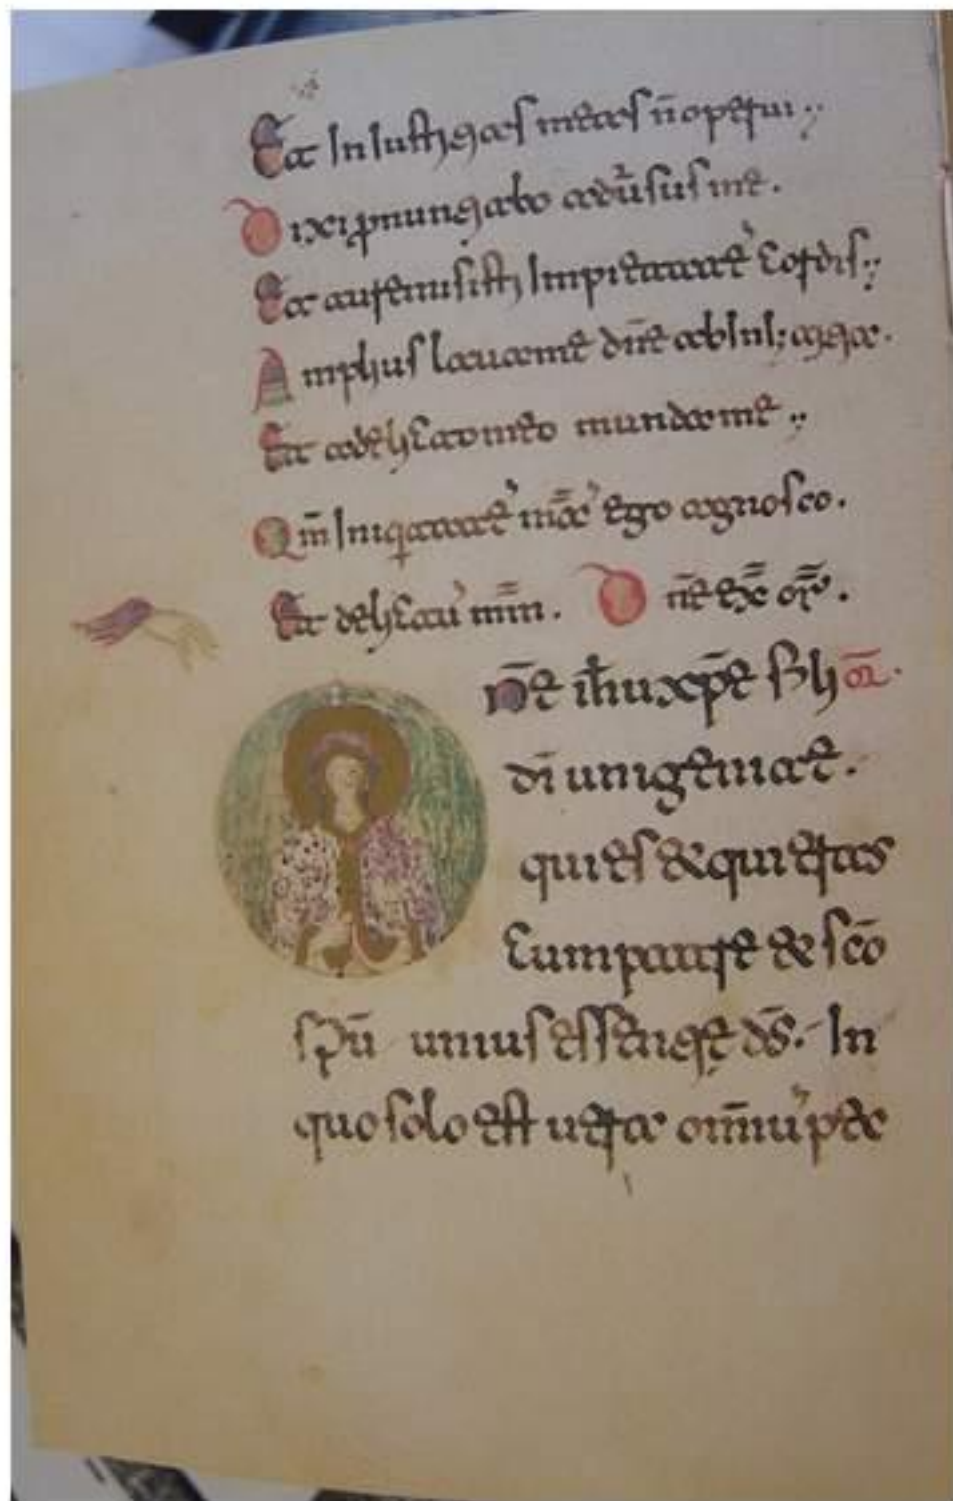 Et Iniustitias meas n̄ operui
Dixi pronuntiabo aduersus me.
Et tu remisisti Impietatē cordis
Amplius laua me dn̄e ab
Et a delicto meo munda me
Qm̄ Iniquitatē meā ego agnosco.
Et delictū mm̄. Dn̄e ex̄ or̄.
Dn̄e ih̄u xp̄e fili or̄.
dī unigenite.
qui es & qui eras
Cum patre & sc̄o
sp̄u unius essentie ds̄. In
quo solo est uera om̄iū pec